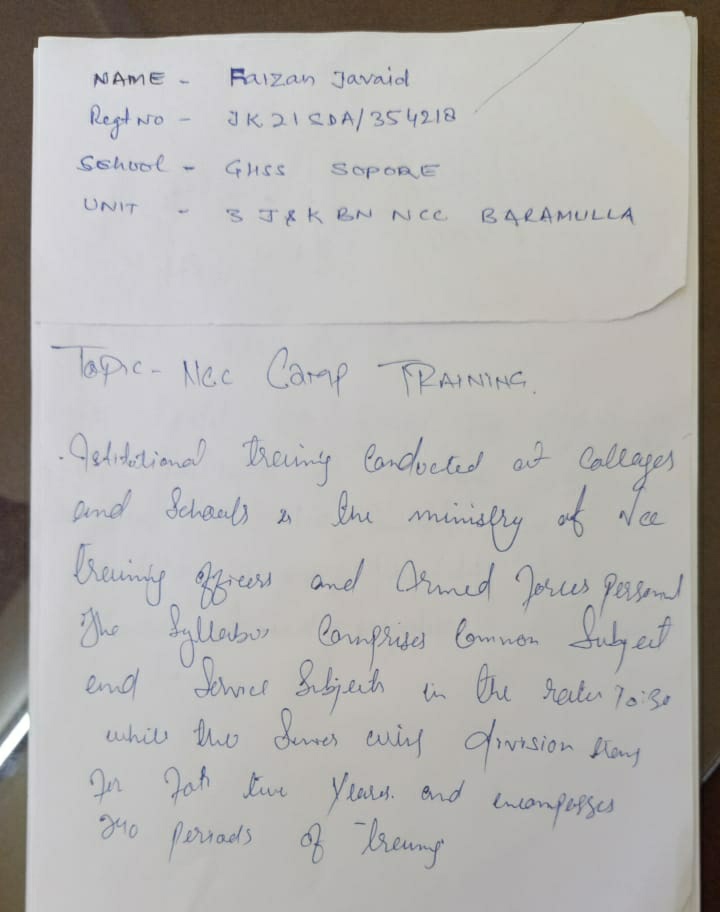 NAME - Faizan Javaid
Regt No - JK21SDA/354218
School - GHSS SOPORE
UNIT - 3 J&K BN NCC BARAMULLA
Topic - NCC Camp TRAINING.
treining Conducted at Collages
and Schools is the ministry of Ncc
treining officers and Armed forces personnel
The Syllabus Comprises Common Subject
and Service Subjects in the 70:30
while the wing division
for two Years. and encompasses
240 periods of